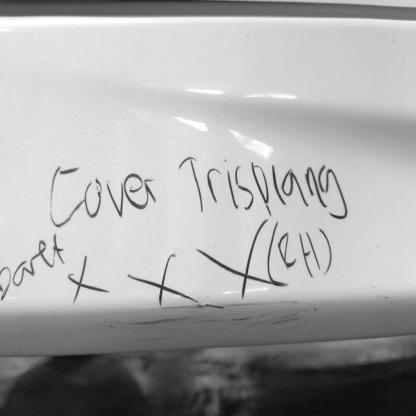 Cover Trisplang
Baret x x x (RH)